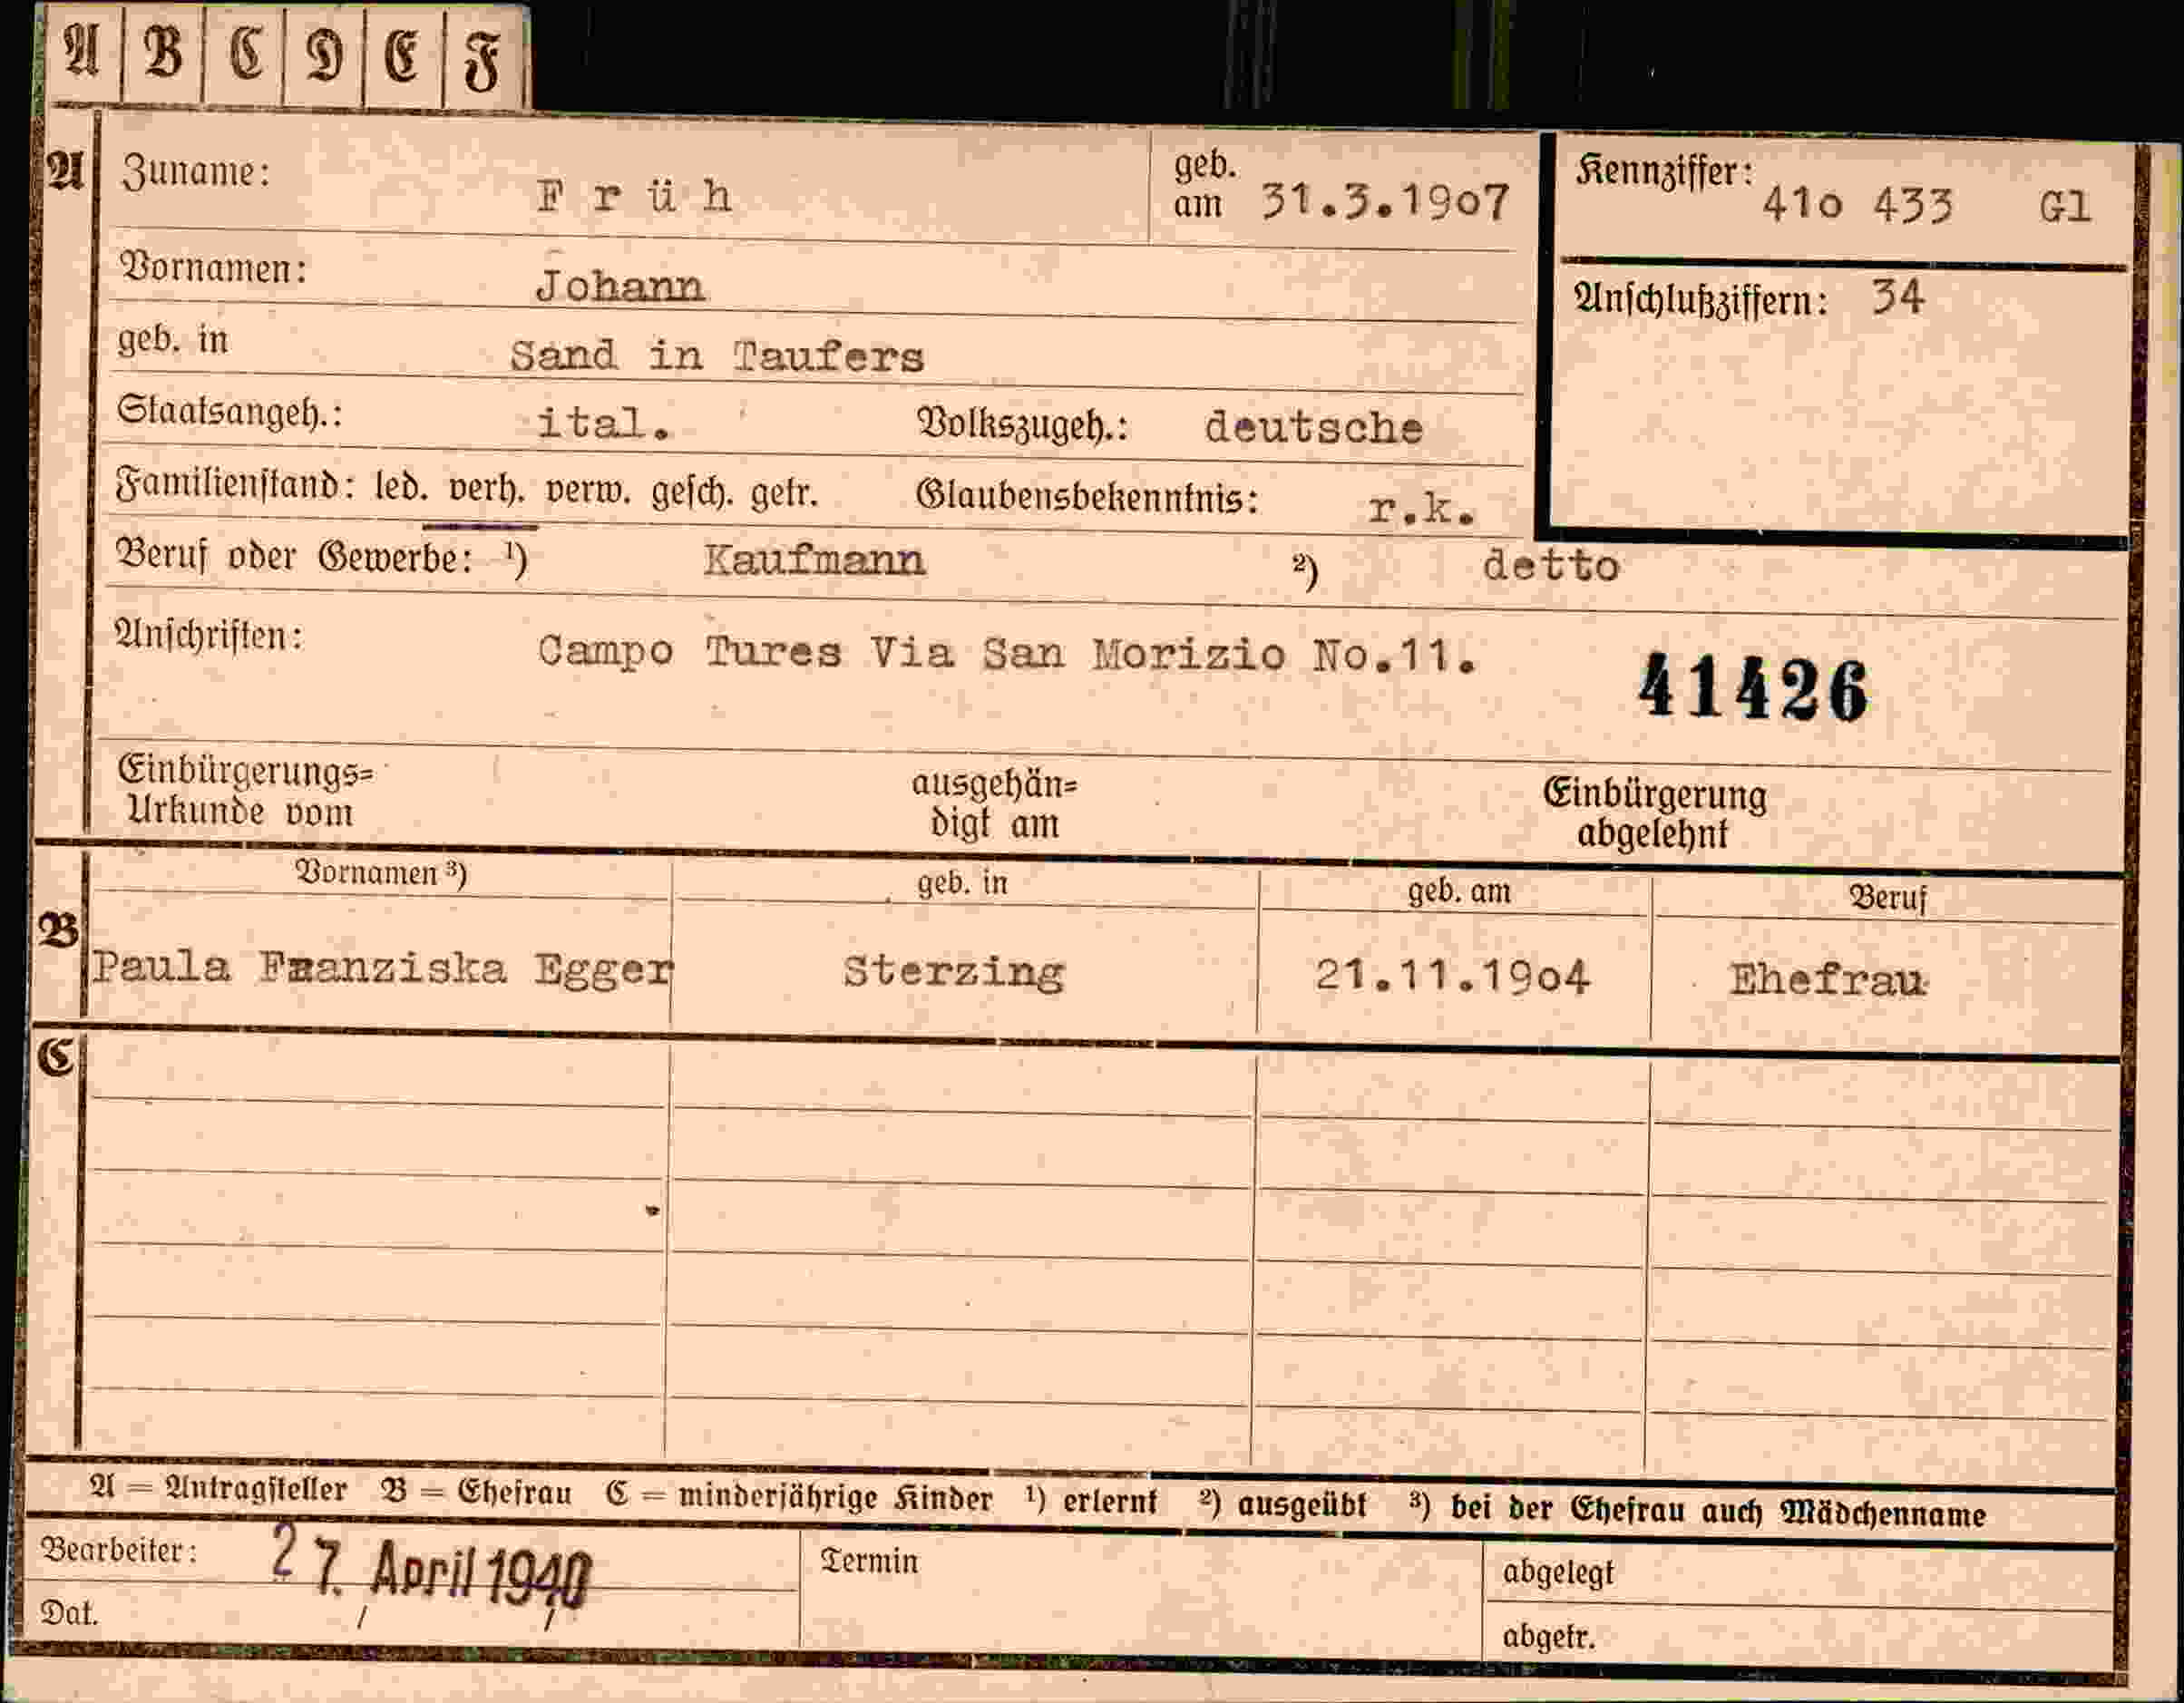 A B C D E F
A Zuname: Früh geb. am 31.3.1907 Kennziffer: 41o 433 Gl
Vornamen: Johann Anschlußziffern: 34
geb. in Sand in Taufers
Staatsangeh.: ital. Volkszugeh.: deutsche
Familienstand: led. verh. verw. gesch. getr. Glaubensbekenntnis: r.k.
Beruf oder Gewerbe: ¹) Kaufmann ²) detto
Anschriften: Campo Tures Via San Morizio No.11. 41426
Einbürgerungs= ausgehän= Einbürgerung
Urkunde vom digt am abgelehnt
Vornamen ³) geb. in geb. am Beruf
B Paula Franziska Egger Sterzing 21.11.19o4 Ehefrau
C
A = Antragsteller B = Ehefrau C = minderjährige Kinder ¹) erlernt ²) ausgeübt ³) bei der Ehefrau auch Mädchenname
Bearbeiter: 27. April 1940 Termin abgelegt
Dat. abgetr.